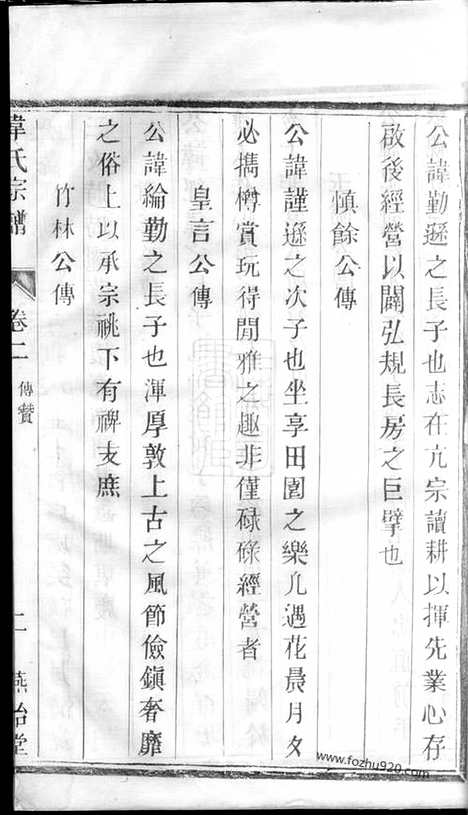 公諱勤遜之長子也志在亢宗讀耕以揮先業心存
啟後經營以闢弘規長房之巨擘也
慎餘公傳
公諱謹遜之次子也坐享田園之樂凢遇花晨月夕
必攜樽賞玩得閒雅之趣非僅碌碌經營者
皇言公傳
公諱綸勤之長子也渾厚敦上古之風節儉鎮奢靡
之俗上以承宗祧下有裨支庶
竹林公傳
韋氏宗譜 卷二 傳贊 二 燕怡堂
www.fozhu920.com